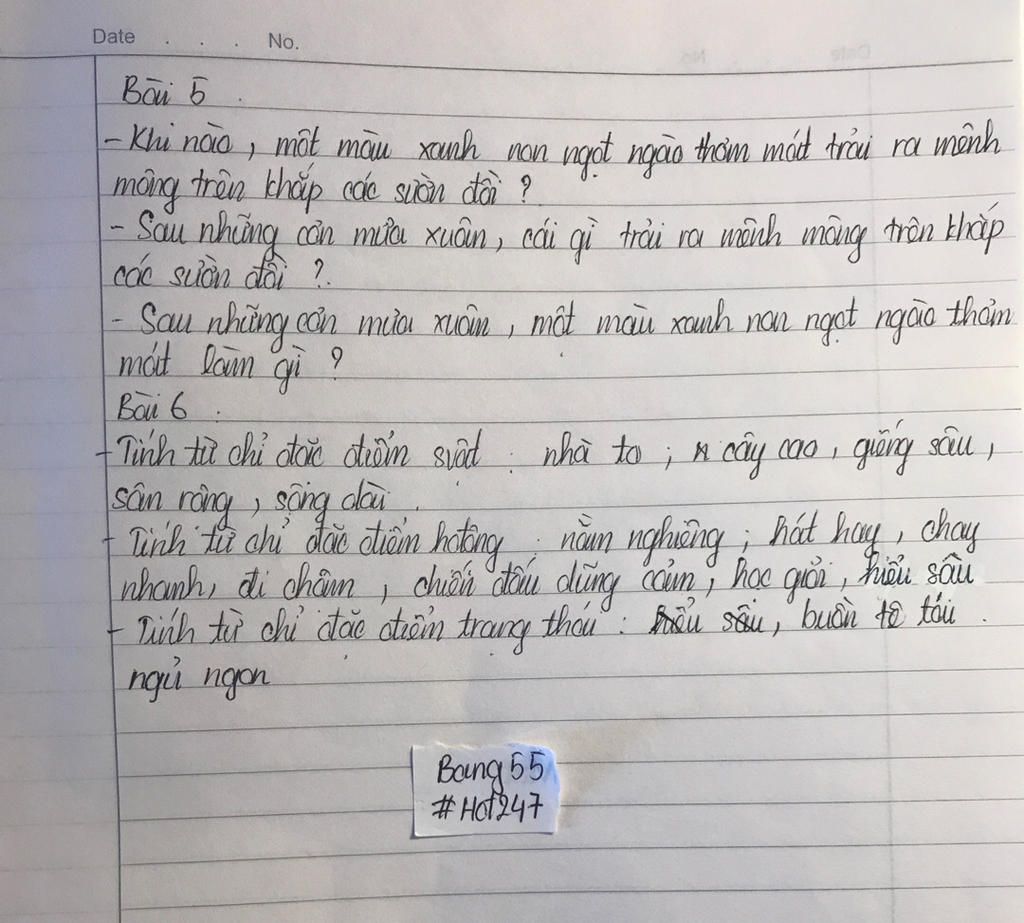 Date . . . No.
Bài 5 .
- Khi nào, một màu xanh non ngọt ngào thơm mát trải ra mênh
mông trên khắp các sườn đồi ?
- Sau những cơn mưa xuân, cái gì trải ra mênh mông trên khắp
các sườn đồi ?
- Sau những cơn mưa xuân, một màu xanh non ngọt ngào thơm
mát làm gì ?
Bài 6 .
- Tính từ chỉ đặc điểm svật : nhà to ; cây cao, giếng sâu,
sân rộng, sông dài .
- Tính từ chỉ đặc điểm hđộng : nằm nghiêng ; hát hay, chạy
nhanh, đi chậm, chiến đấu dũng cảm, học giỏi, hiểu sâu
- Tính từ chỉ đặc điểm trạng thái : buồn tê tái .
ngủ ngon
Bang55
#Hot247